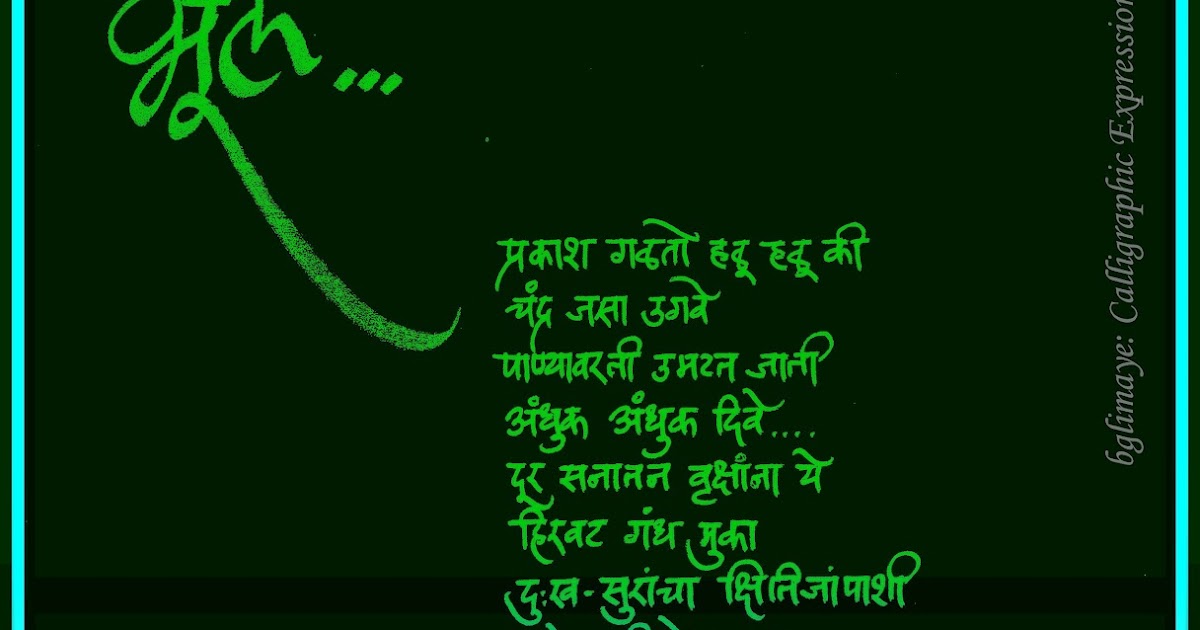 भूल...
प्रकाश गळतो हळू हळू की
चंद्र जसा उगवे
पाण्यावरती उमटत जाती
अंधुक अंधुक दिवे....
दूर सनातन वृक्षांना ये
हिरवट गंध मुका
दुःख-सुरांचा क्षितिजांपाशी
bglimaye: Calligraphic Expression